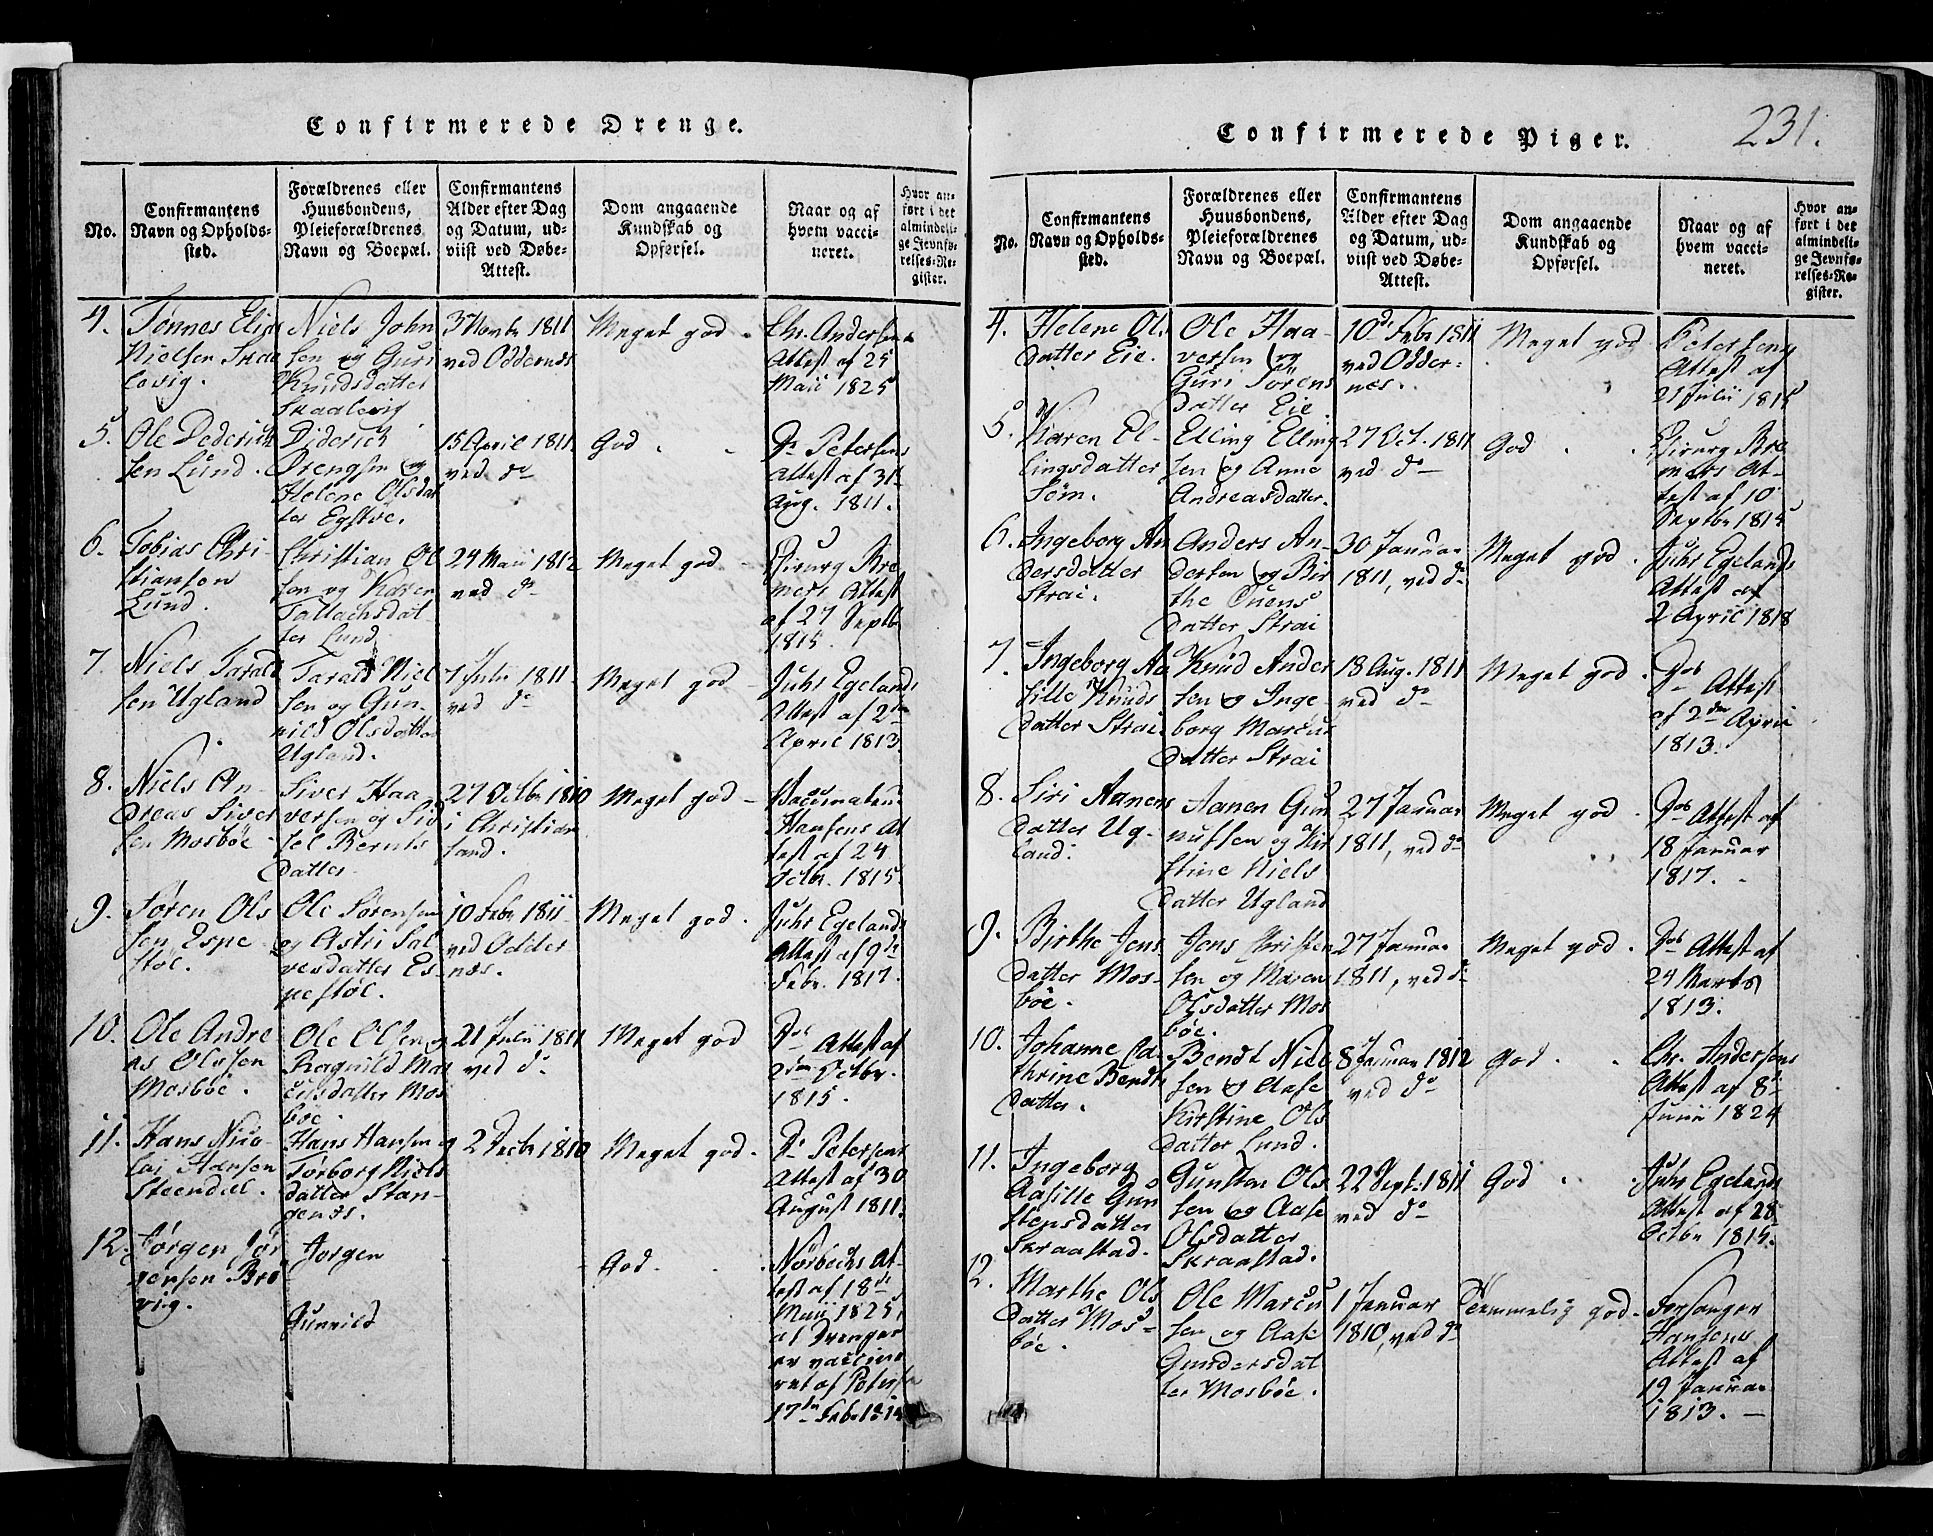 Confirmerede Drenge.
No.
Confirmantens
Navn og Opholds-
sted.
Forældrenes eller
Huusbondens,
Pleieforældrenes
Navn og Boepæl.
Confirmantens
Alder efter Dag
og Datum, ud-
viist ved Døbe-
Attest.
Dom angaaende
Kundskab og
Opførsel.
Naar og af
hvem vacci-
neret.
Hvor an-
ført i det
almindeli-
ge Jevnfø-
relses-Re-
gister.
4.
Tønnes Elias
Nielsen Skaa
levig.
Niels John
sen og Guri
Knudsdatter
Skaalevig
3 Novbr 1811
ved Oddernes
Meget god
Chr. Andersens
Attest af 25
Maii 1825
5.
Ole Dederich
sen Lund.
Diderich
Drengsen og
Helene Olsdat
ter Egstøe.
15 April 1811
ved do
God
Dr Petersens
Attest af 31
Aug. 1811.
6.
Tobias Chri-
stiansen
Lund.
Christian Ol
sen og Karen
Tallachsdat-
ter Lund.
24 Maii 1812
ved do
Meget god
Chirurg Bre
mers Attest
af 27 Septbr
1815.
7.
Niels Tarald
sen Ugland
Tarald Niel
sen og Gun-
nild Olsdatter
Ugland.
7 Julii 1811
ved do
Meget god
Juhr Egelands
Attest af 2den
April 1813
8.
Niels An-
dreas Siver
sen Mosbøe
Siver Haa-
versen og Sid
sel Bernts
datter
27 Octbr 1810
i Christian
sand.
Meget god
Vaccinateur
Hansens At
test af 24
Octbr. 1815.
9.
Søren Ols
sen Espe
støe.
Ole Sørensen
og Astri Sal
vesdatter Es-
pestøe.
10 Febr 1811
ved Odder
nes.
Meget god.
Juhr Egelands
Attest af 9de
Febr. 1817.
10.
Ole Andre
as Olssen
Mosbøe.
Ole Olsen og
Ragnild Mar
cusdatter Mos
bøe.
21 Julii 1811
ved do
Meget god
Dos Attest af
2den Octbr.
1815.
11.
Hans Nico-
lai Hansen
Steendal.
Hans Hansen og
Torborg Niels
datter Stan-
gends.
2 Decbr 1810
Meget god.
Dr Petersens
Attest af 30
August 1811.
12.
Jørgen Jør
gensen Bro
vig.
Jørgen
Gunnild
God.
Nørbechs At-
test af 18de
Maii 1825,
at Drengen
er vaccine
ret af Petersen
17den Febr 181
Confirmerede Piger.
231.
No.
Confirmantens
Navn og Opholds-
sted.
Forældrenes eller
Huusbondens,
Pleieforældrenes
Navn og Boepæl.
Confirmantens
Alder efter Dag
og Datum, ud-
viist ved Døbe-
Attest.
Dom angaaende
Kundskab og
Opførsel.
Naar og af
hvem vacci-
neret.
Hvor an-
ført i det
almindeli-
ge Jevnfø-
relses-Re-
gister.
4.
Helene Ols
datter Eie.
Ole Haa-
versen og
Guri Sørens
datter Eie
10de Febr 1811
ved Odder-
nes.
Meget god
Petersens
Attest af
21 Julii 1815
5.
Karen El-
lingsdatter
Søm.
Elling Elling
sen og Anne
Andreasdatter.
27 Oct. 1811
ved do
God
Chirurg Bre
mers At-
test af 10
Septbr 1815
6.
Ingeborg An
dersdatter
Strai.
Anders An-
dersen og Bir
the Ouens
datter Strai
30 Januar
1811, ved do
Meget god.
Juhr Egelands
Attest af
2 April 1818
7.
Ingeborg Aa
sille Knuds
datter Strai.
Knud Ander
sen og Inge-
borg Marcus
datter Strai
18 Aug. 1811
ved do
Meget god.
Dos Attest
af 2den April
1813.
8.
Siri Aanens
datter Ug-
land.
Aanen Gun
nufsen og Kir
stine Niels
datter Ugland
27 Januar
1811, ved do
Meget god
Dos Attest af
18 Januar
1817.
9.
Birthe Jens
datter Mos-
bøe.
Jens Christen
sen og Maren
Olsdatter Mos
bøe.
27 Januar
1811, ved do
Meget god.
Dos Attest af
24 Marts
1813.
10.
Johanne Ca-
thrine Bendt
datter.
Bendt Niel
sen og Aase
Kirstine Ols
datter Lund.
8 Januar 1812
ved do
God.
Chr. Andersens
Attest af 8de
Junii 1824
11.
Ingeborg
Aasille Gun
stensdatter
Skraastad.
Gunsten Ols
sen og Aase
Olsdatter
Skraastad.
22 Sept. 1811
ved do
God
Juhr Egelands
Attest af 28
Octbr 1815.
12.
Marthe Ols
datter Mos-
bøe.
Ole Marcu
sen og Aase
Gundersdat
ter Mosbøe.
1 Januar
1810, ved do
Temmelig god.
Forsanger
Hansens
Attest af
19 Januar
1813.